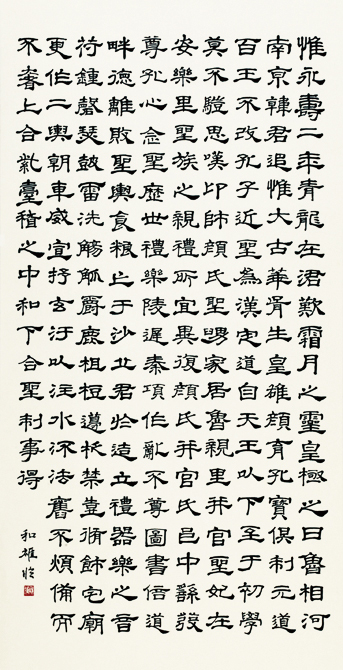 惟永壽二年青龍在涒歎霜月之靈皇極之日魯相河
南京韓君追惟大古華胥生皇雄顏育孔寶俱制元道
百王不改孔子近聖為漢定道自天王以下至于初學
莫不驥思嘆卬師顏氏聖舅家居魯親里并官聖妃在
安樂里聖族之親禮所宜異復顏氏并官氏邑中繇發
尊孔心念聖歷世禮樂陵遲秦項作亂不尊圖書倍道
畔德離敗聖輿食糧亡于沙丘君於造立禮器樂之音
符鍾磬瑟鼓雷洗觴觚爵鹿柤梪籩柉禁壺脩飾宅廟
更作二輿朝車威宣抒玄汙以注水流法舊不煩備而
不奢上合紫臺稽之中和下合聖制事得
和雄臨